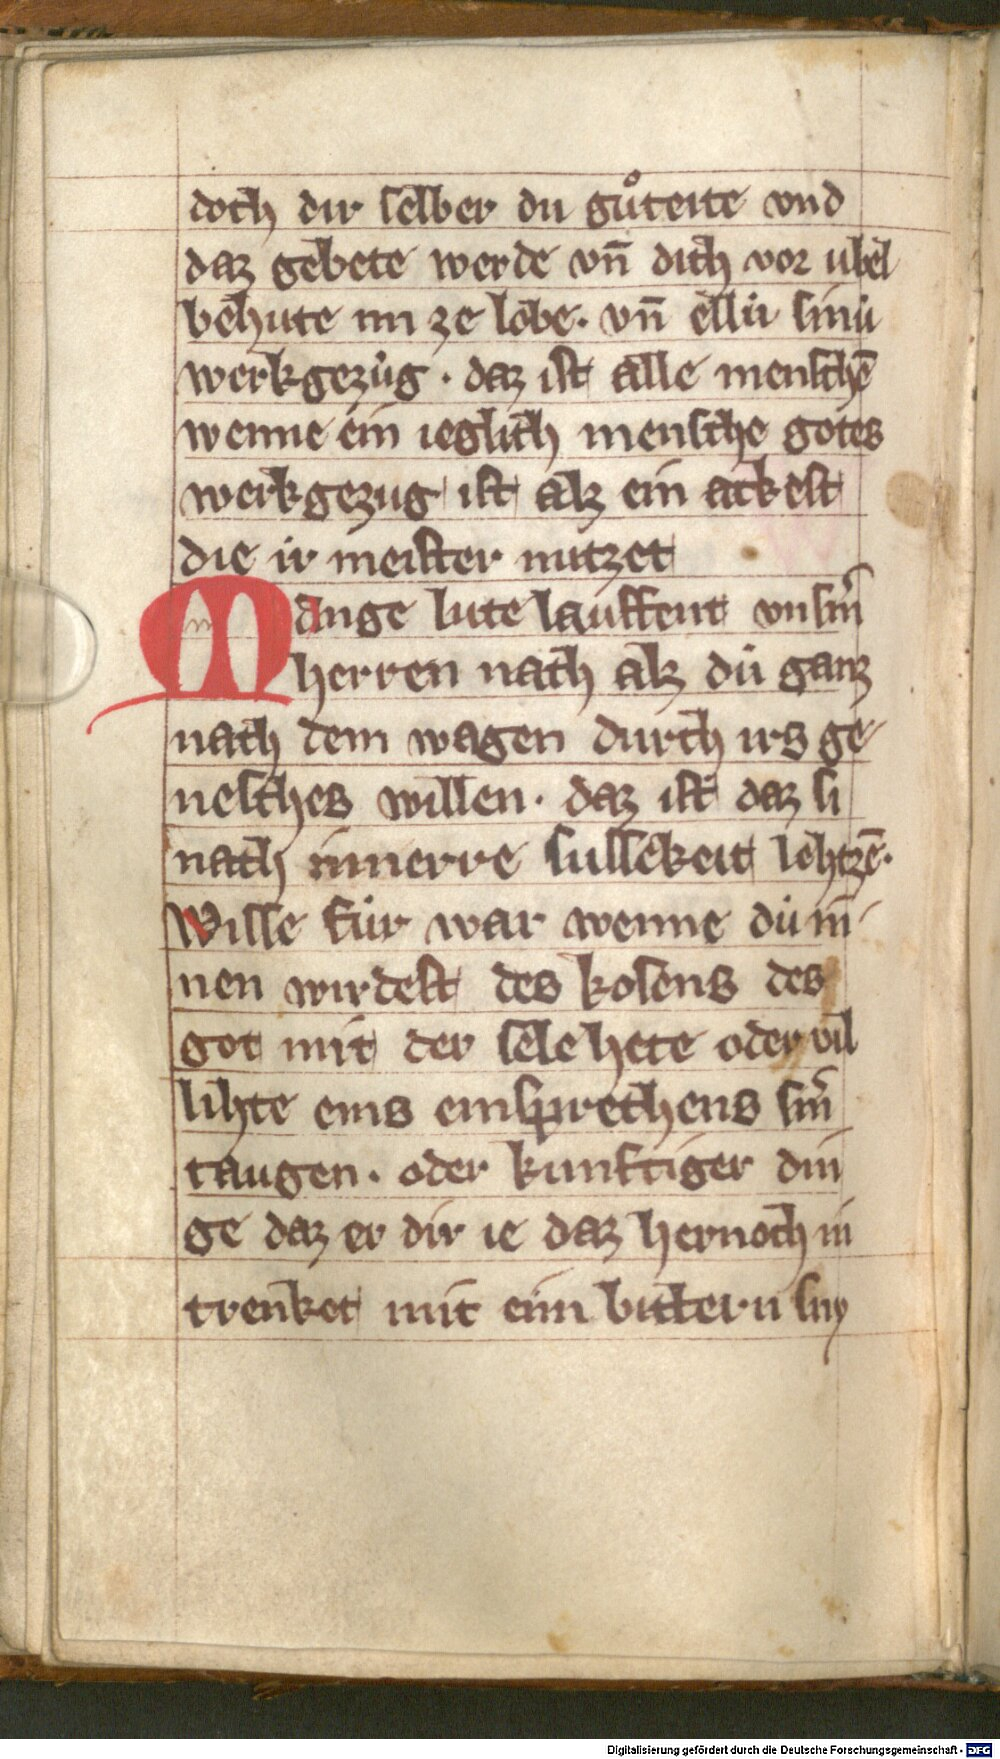 doch dir selber du guͦteite vnd
daz gebete werde vn̄ dich vor ubel
behute im ze lobe. vn̄ ellu̍ sinu̍
werkgezu̍g. daz ist alle menschē
wenne ein ieglich mensche gotes
werkgezug ist alz ein ackest
die ir meister nutzet
Mange lute lauffent vnsm̄
herren nach alz du̍ ganz
nach dem wagen durch irs ge
nesches willen. daz ist daz si
nach innerre sussekeit lehtzē.
Wisse fu̍r war wenne du in
nen wirdest des kosens des
got mit der sele hete oder vil
lihte eins einsprechens sin̄
taugen. oder kunftiger din
ge daz er dir ie daz hernoch in
trenket mit eim bittern suy
Digitalisierung gefördert durch die Deutsche Forschungsgemeinschaft - DFG